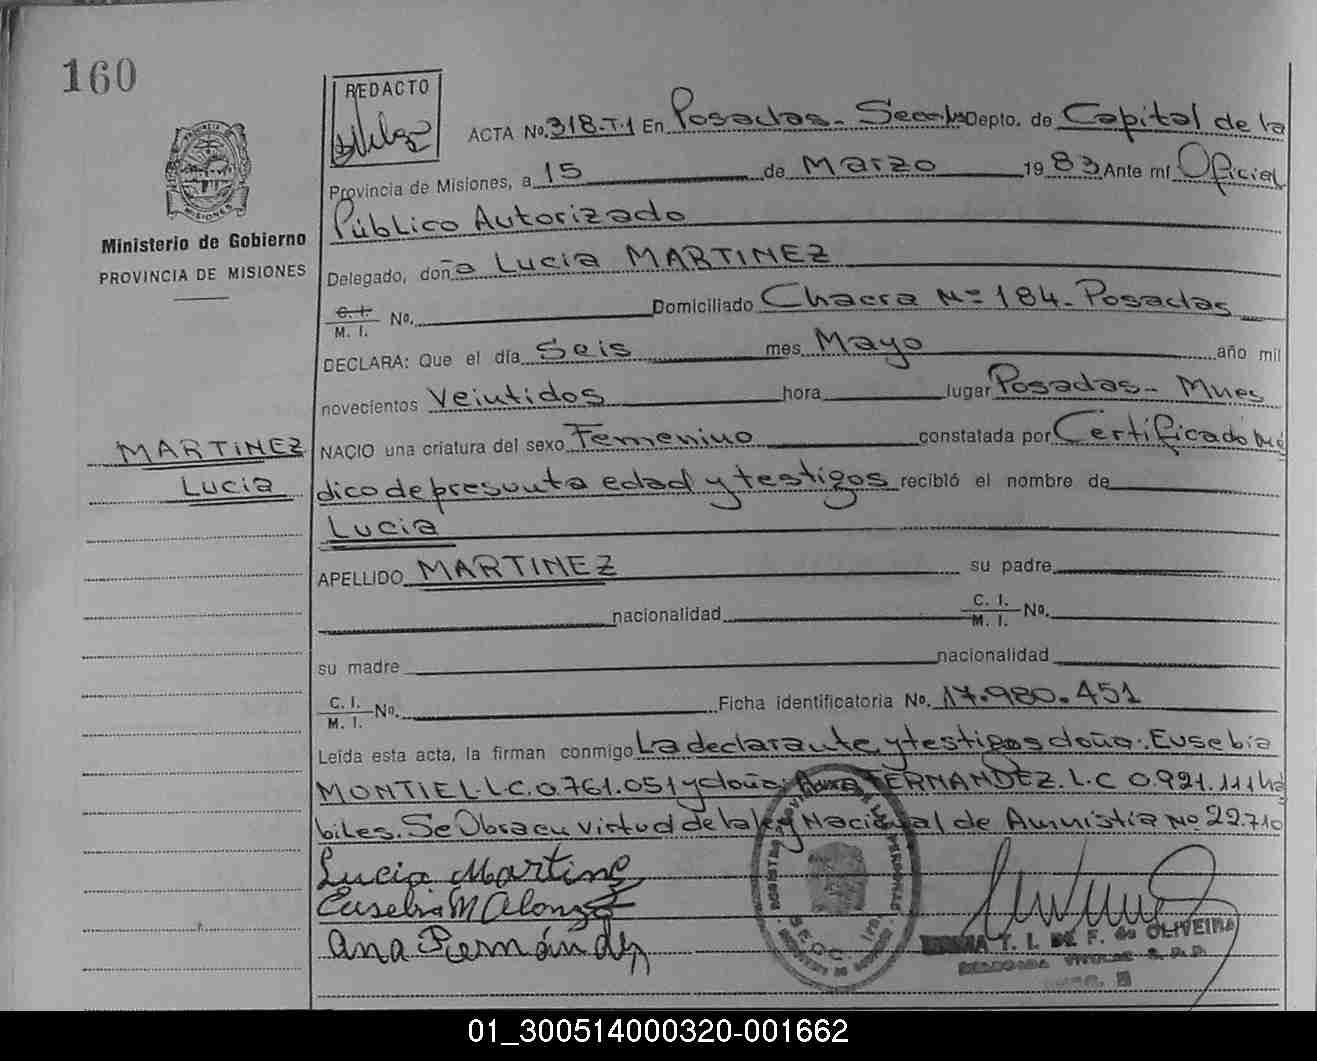 160
REDACTO
ACTA No. 318-T-1 En Posadas - Depto. de Capital de la
Provincia de Misiones, a 15 de Marzo 1983 Ante mí Oficial
Público Autorizado
Delegado, doña Lucia MARTINEZ
C. I.
M. I. No. Domiciliado Chacra Nº 184 - Posadas
DECLARA: Que el día Seis mes Mayo año mil
novecientos Veintidos hora lugar Posadas - Mnes
NACIO una criatura del sexo Femenino constatada por Certificado Mé
dico de presunta edad y testigos recibió el nombre de
Lucia
APELLIDO MARTINEZ su padre
nacionalidad C. I.
M. I. No.
su madre nacionalidad
C. I.
M. I. No. Ficha identificatoria No. 17.980.451
Leída esta acta, la firman conmigo La declarante y testigos doña: Eusebia
MONTIEL. L.C. 0.761.051 y doña: Ana FERNANDEZ. L.C 0.921.111 há
biles. Se Obra en virtud de la ley Nacional de Amnistia Nº 22.710
Lucia Martinez
Eusebia M Alonzo
Ana Fernández
T. I. DE F. de OLIVEIRA
PROVINCIA DE
MISIONES
Ministerio de Gobierno
PROVINCIA DE MISIONES
MARTINEZ
Lucia
01_300514000320-001662